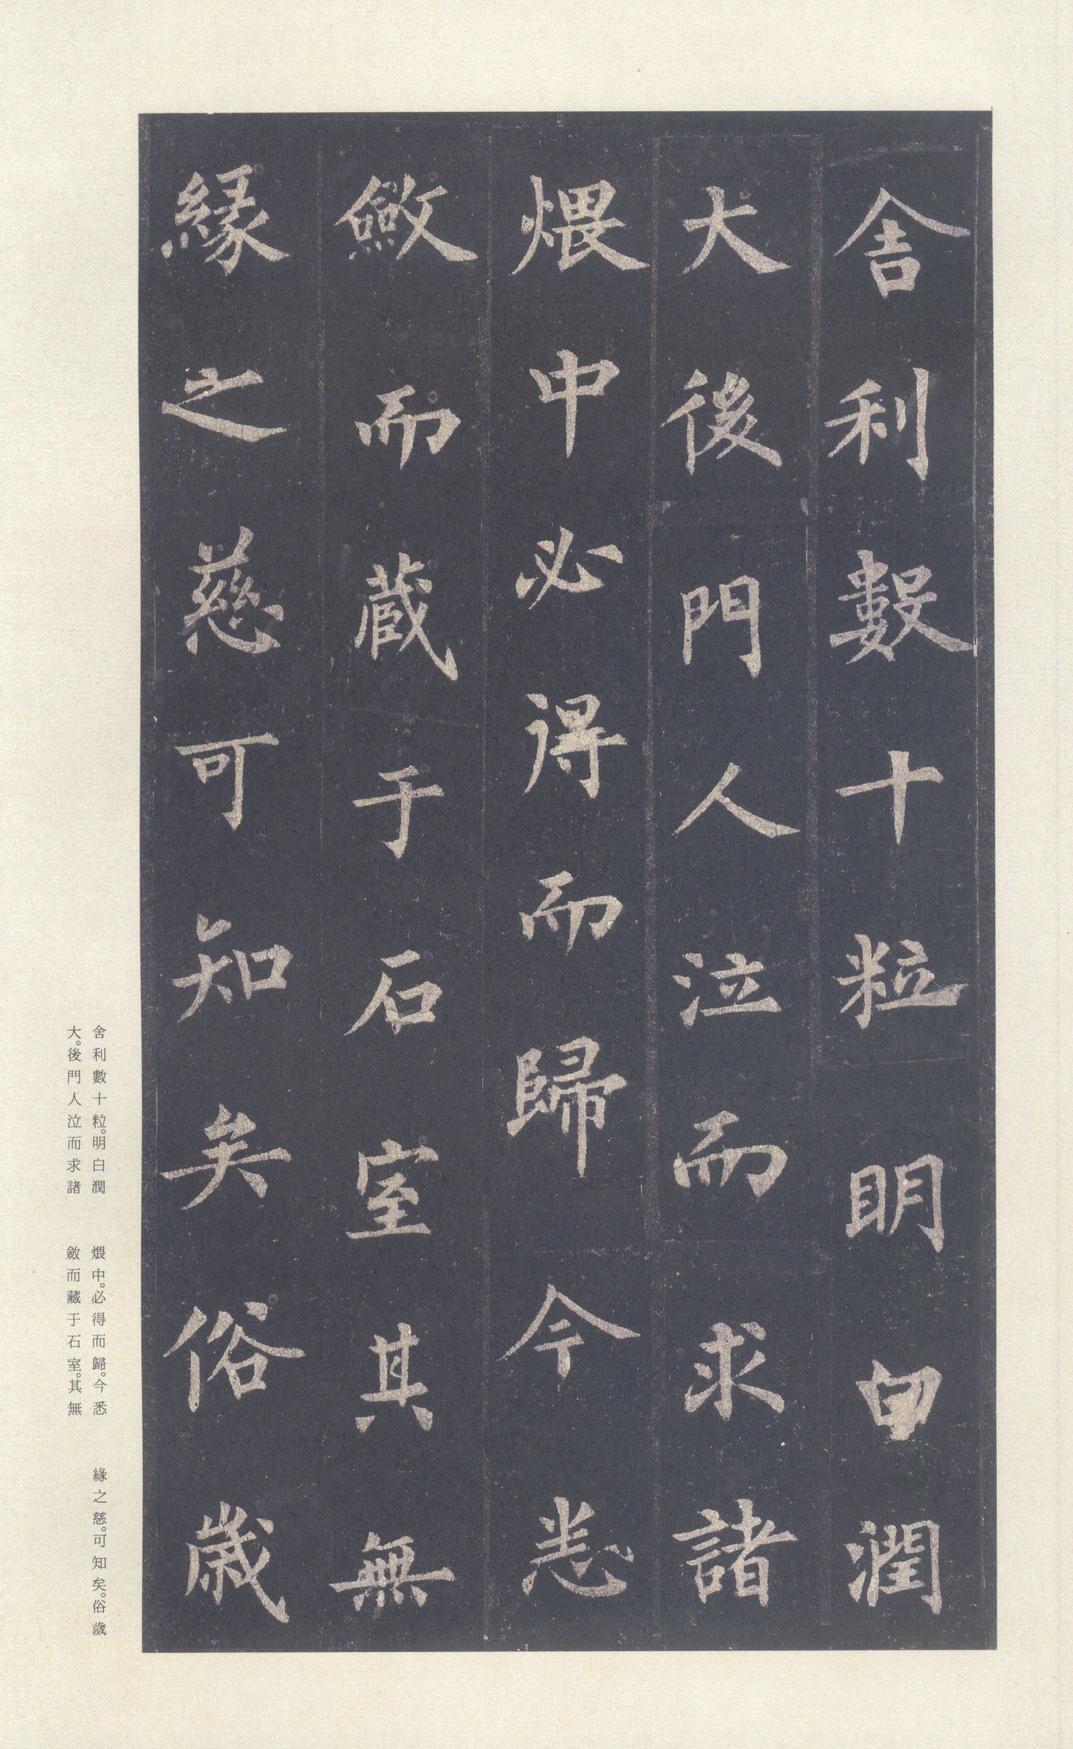 舍利數十粒明白潤
大後門人泣而求諸
煨中必得而歸今悉
斂而藏于石室其無
緣之慈可知矣俗歲
舍利數十粒。明白潤
大。後門人泣而求諸
煨中。必得而歸。今悉
斂而藏于石室。其無
緣之慈。可知矣。俗歲